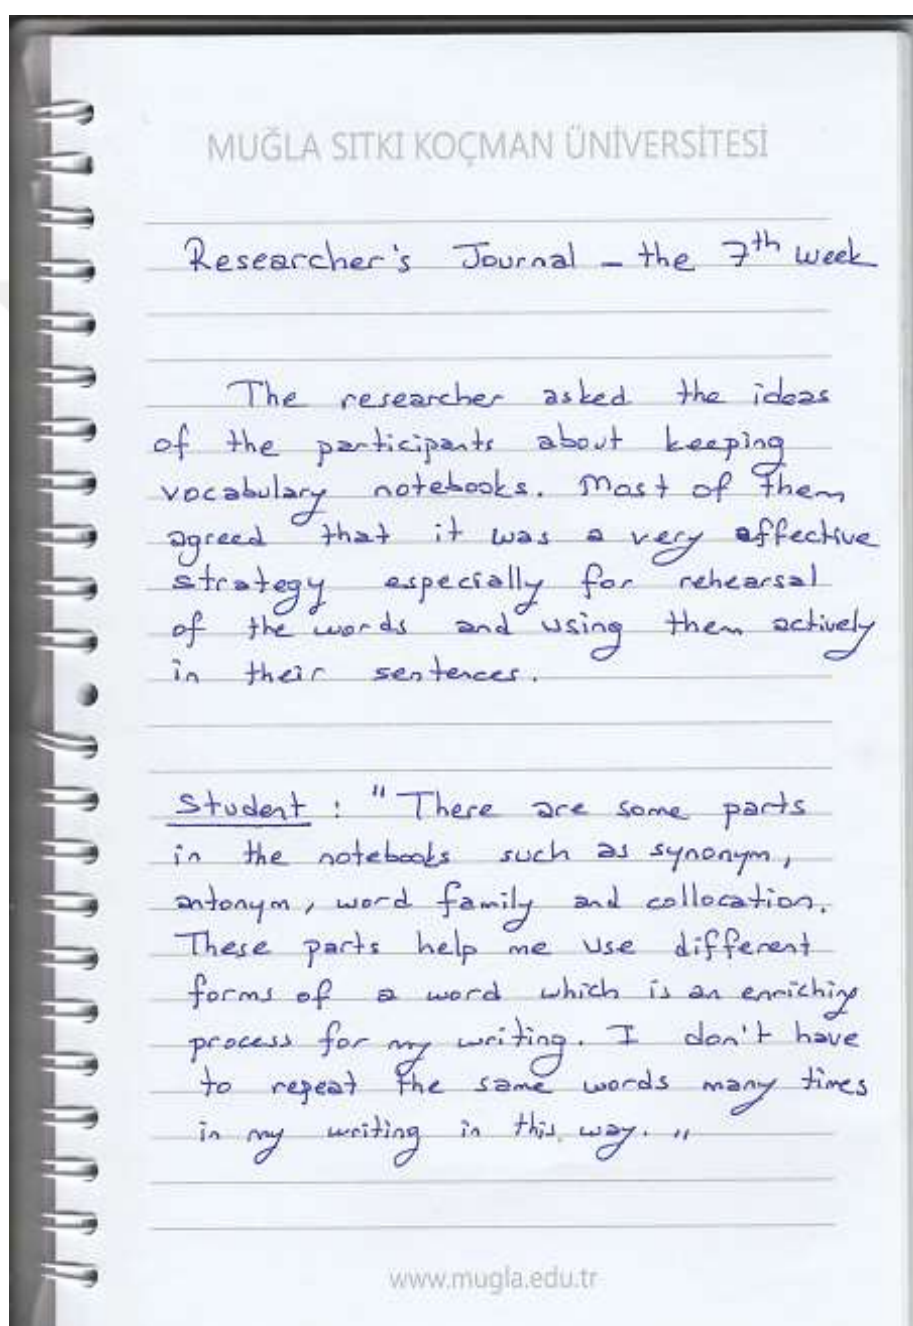 MUĞLA SITKI KOÇMAN ÜNİVERSİTESİ
Researcher's Journal - the 7th week
The researcher asked the ideas
of the participants about keeping
vocabulary notebooks. Most of them
agreed that it was a very effective
strategy especially for rehearsal
of the words and using them actively
in their sentences.
Student : "There are some parts
in the notebooks such as synonym,
antonym, word family and collocation.
These parts help me use different
forms of a word which is an enriching
process for my writing. I don't have
to repeat the same words many times
in my writing in this way. "
www.mugla.edu.tr